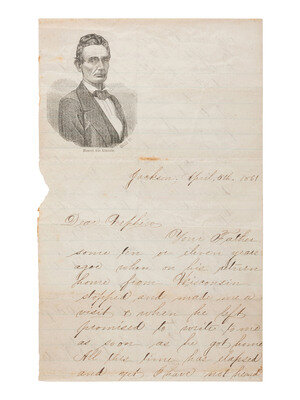 Jackson, April, 5th, 1861
Dear Nephew
Your Father
some ten or eleven years
agoe when on his return
home from Wisconsin
stopped and mad me a
visit & when he left
promised to write to me
as soon as he got home
All this time has elapsed
and yet I have not heard